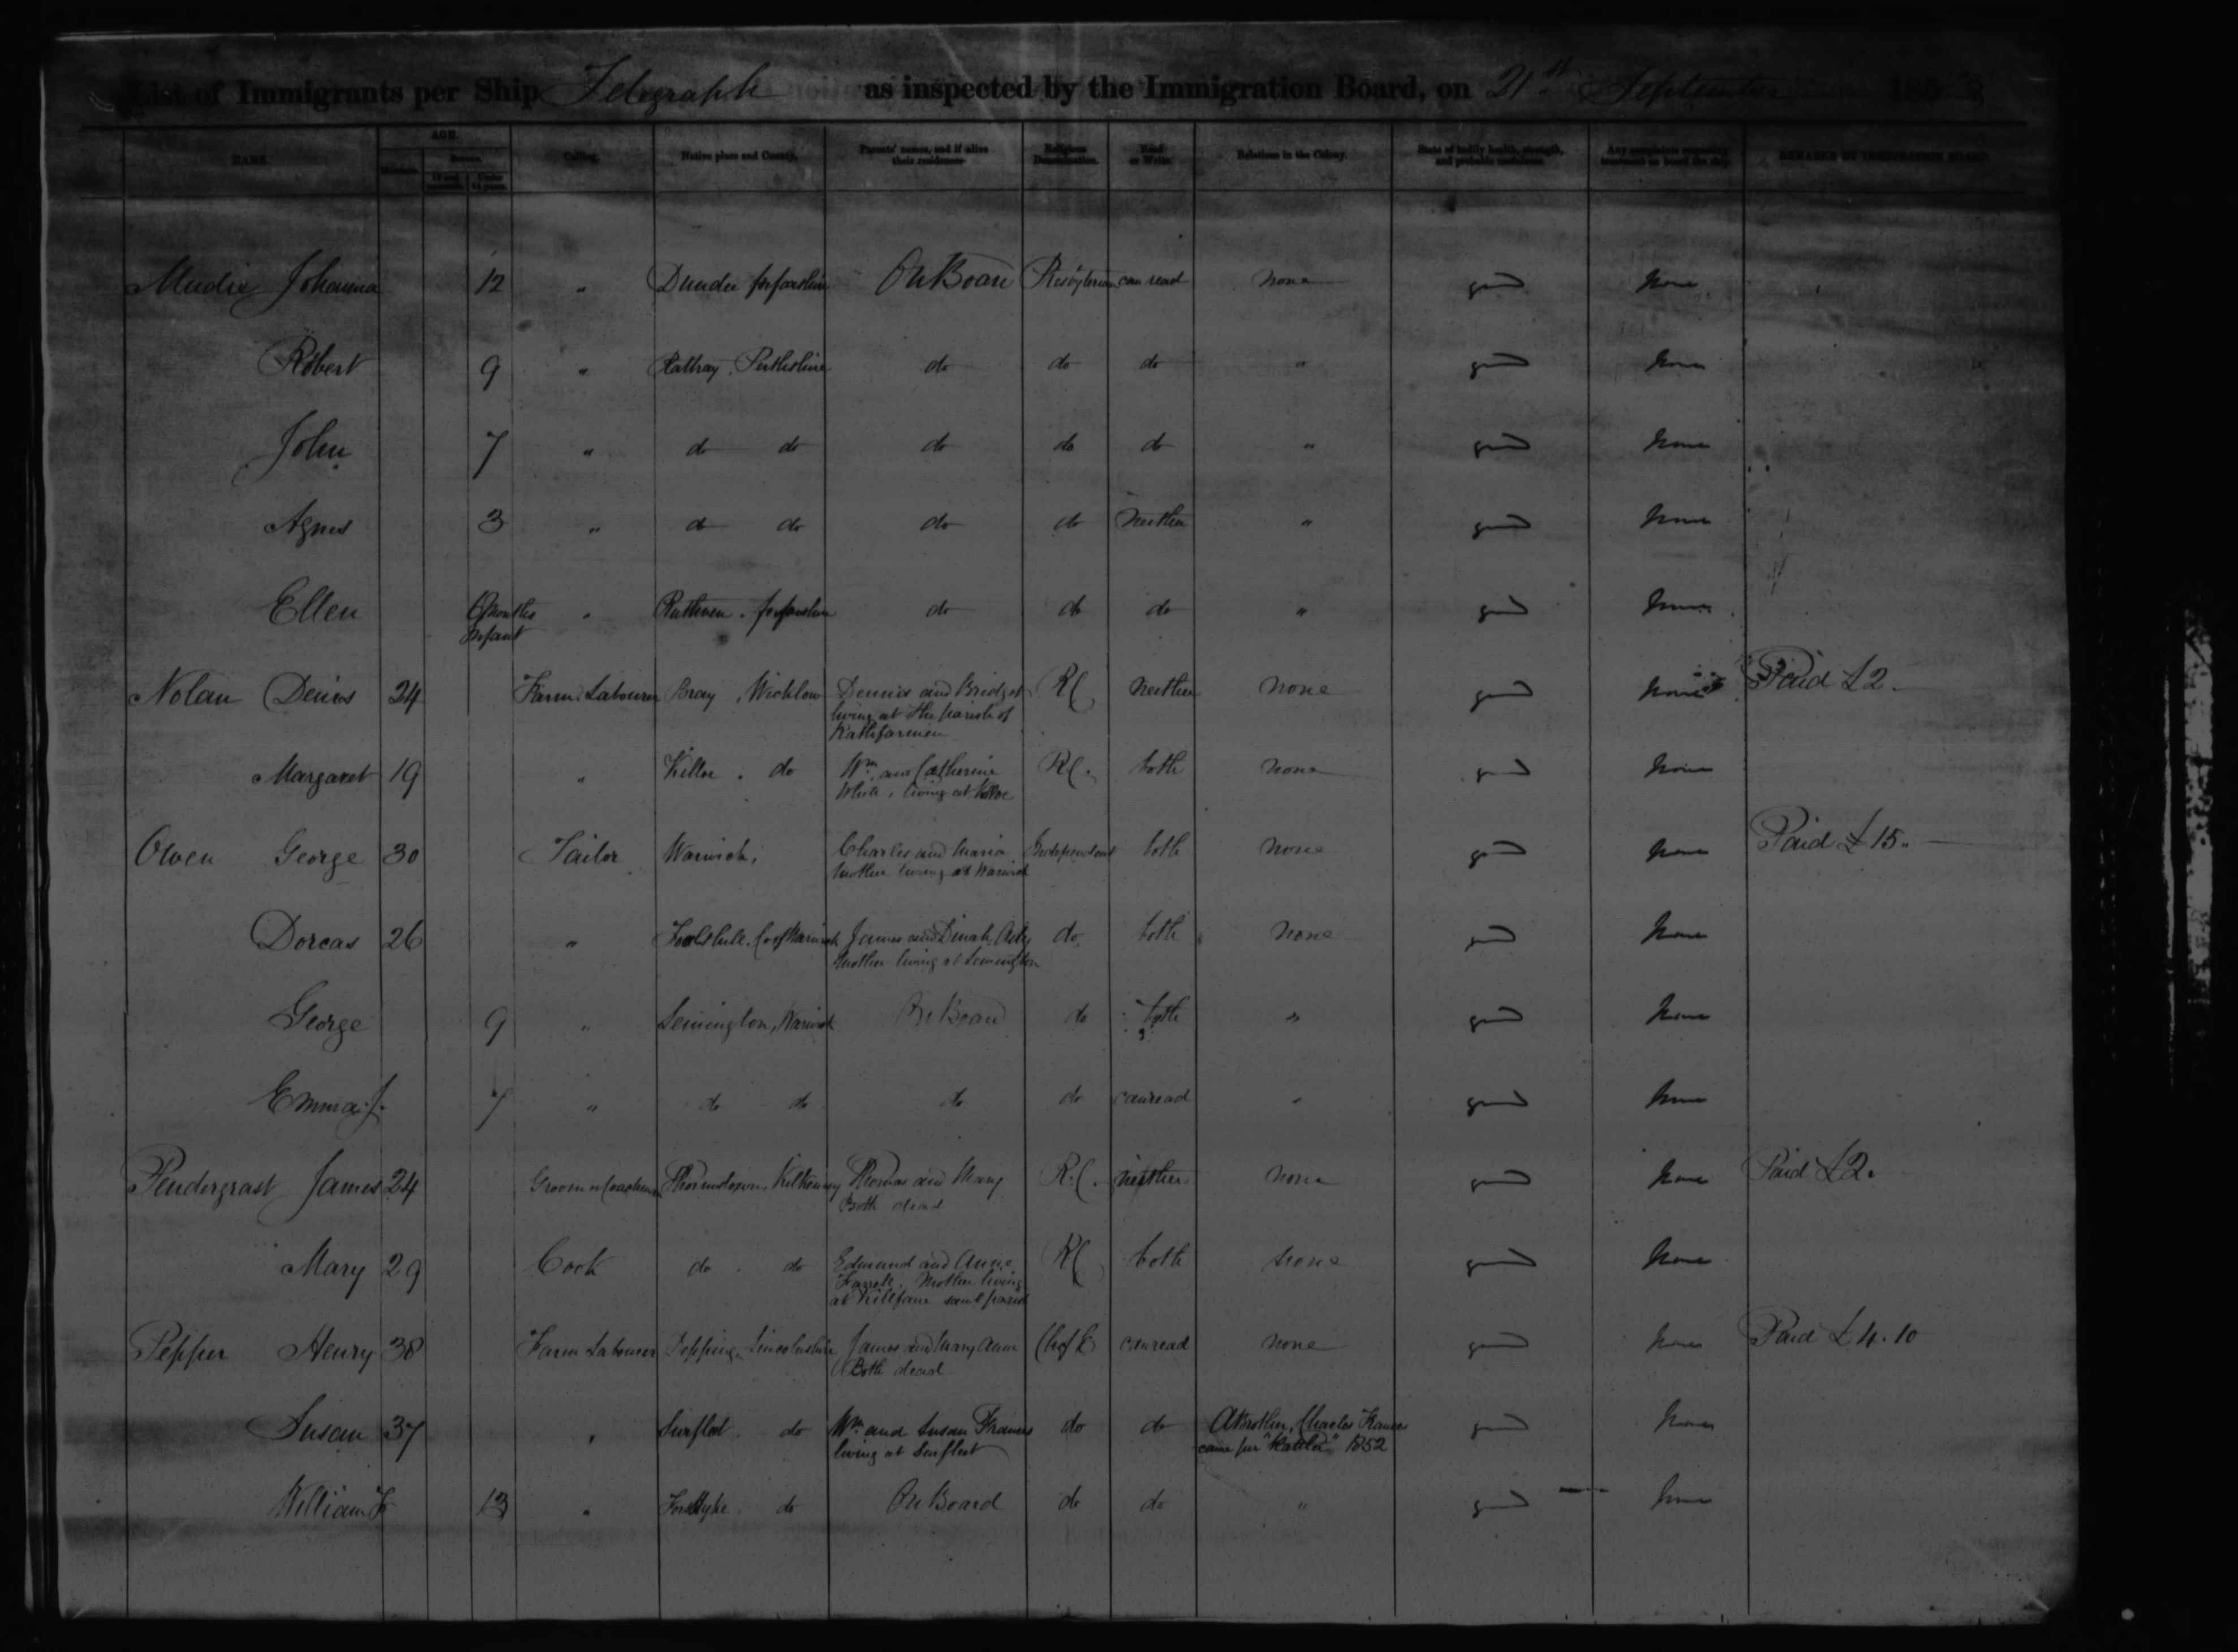 List of Immigrants per Ship Telegraph as inspected by the Immigration Board, on 21st September 185
NAME. AGE. Calling. Native place and County. Parents' names, and if alive their residence. Religious Denomination. Read or Write. Relations in the Colony. State of bodily health, strength, and probable usefulness. Any complaints respecting treatment on board the ship. REMARKS BY IMMIGRATION BOARD
Mudie Johanna 12 " Dundee Forfarshire On Board Presbyterian can read none good none
Robert 9 " Rattray. Perthshire do do do " good none
John 7 " do do do do do " good none
Agnes 3 " do do do do neither " good none
Ellen months Infant " Ruthven. Forfarshire do do do " good none
Nolan Denis 24 Farm Labourer Bray, Wicklow Dennis and Bridget living at the parish of RC neither none good none Paid £2
Margaret 19 " do Wm. and Catherine White, living at RC. both none good none
Owen George 30 Tailor Warwick, Charles and Maria Mother living at Warwick Independent both none good none Paid £15.
Dorcas 26 " Co of Warwick James and Dinah Mother living at Leamington do both none good none
George 9 " Leamington, Warwick On Board do both " good none
Emma J. 7 " do do do do can read " good none
Pendergrast James 24 Groom or Coachman Kilkenny Thomas and Mary Both dead R.C. neither none good none Paid £2.
Mary 29 Cook do. do Edmund and Anne Mother living at same parish RC both none good none
Pepper Henry 38 Farm Labourer Lincolnshire James and Mary Ann Both dead Ch of E can read none good none Paid £4.10
Susan 37 " Surfleet. do Wm. and Susan living at Surfleet do do A Brother, Charles came per 1852 good none
William 13 " Fosdyke. do On Board do do " good none